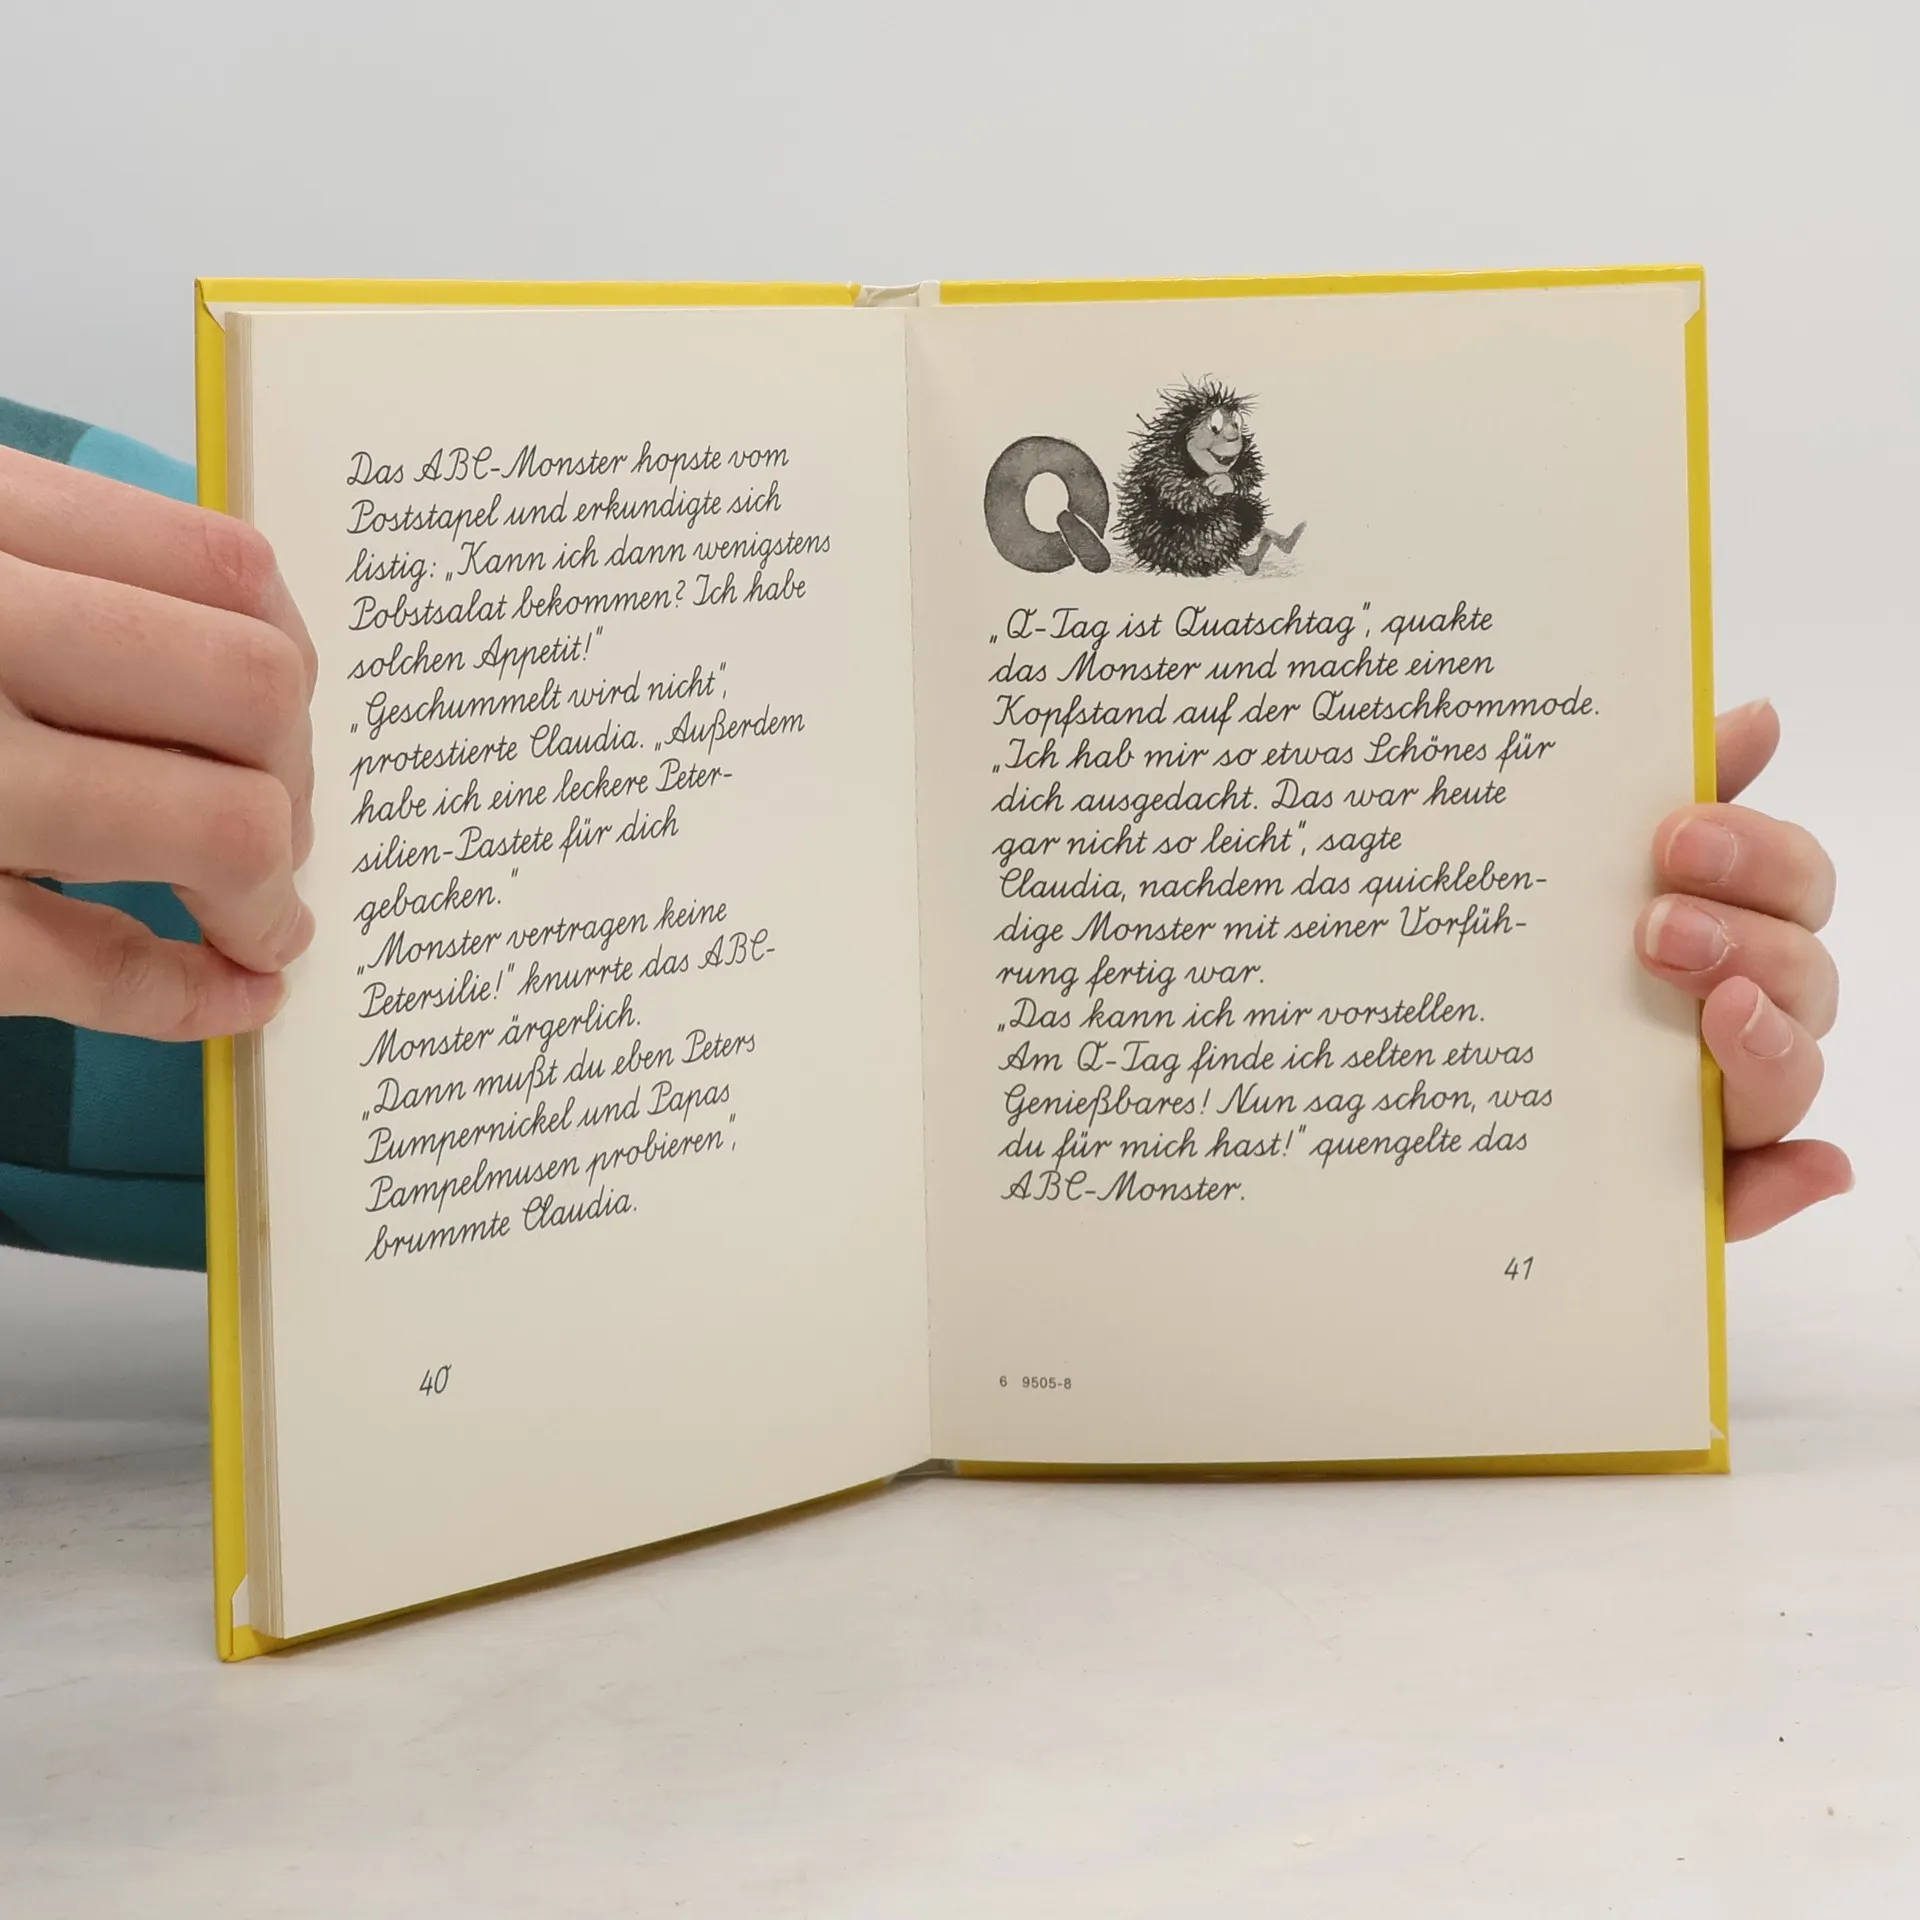 Das ABC-Monster hopste vom
Poststapel und erkundigte sich
listig: „Kann ich dann wenigstens
Pobstsalat bekommen? Ich habe
solchen Appetit!"
„Geschummelt wird nicht",
protestierte Claudia. „Außerdem
habe ich eine leckere Peter-
silien-Pastete für dich
gebacken."
„Monster vertragen keine
Petersilie!" knurrte das ABC-
Monster ärgerlich.
„Dann mußt du eben Peters
Pumpernickel und Papas
Pampelmusen probieren",
brummte Claudia.
40
Q
„Q-Tag ist Quatschtag", quakte
das Monster und machte einen
Kopfstand auf der Quetschkommode.
„Ich hab mir so etwas Schönes für
dich ausgedacht. Das war heute
gar nicht so leicht", sagte
Claudia, nachdem das quickleben-
dige Monster mit seiner Vorfüh-
rung fertig war.
„Das kann ich mir vorstellen.
Am Q-Tag finde ich selten etwas
Genießbares! Nun sag schon, was
du für mich hast!" quengelte das
ABC-Monster.
41
6 9505-8